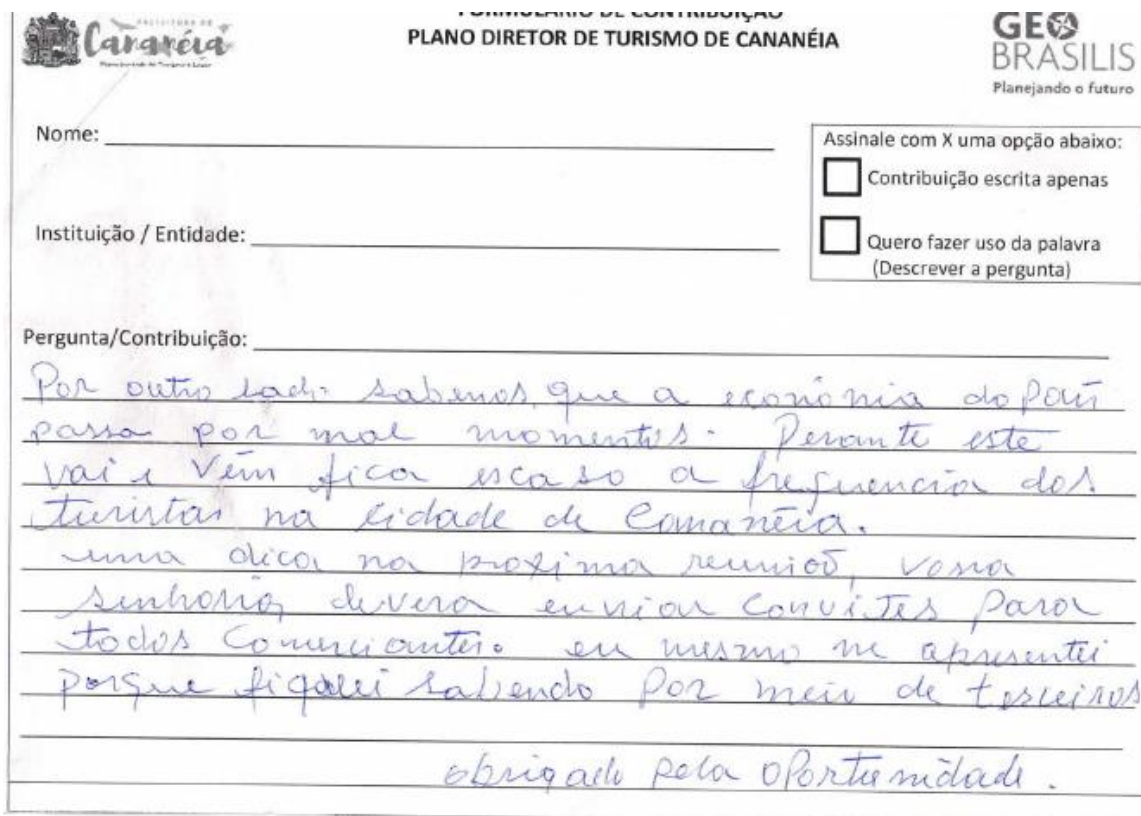 Cananéia
FORMULÁRIO DE CONTRIBUIÇÃO
PLANO DIRETOR DE TURISMO DE CANANÉIA
GEO
BRASILIS
Planejando o futuro
Nome:
Assinale com X uma opção abaixo:
Contribuição escrita apenas
Instituição / Entidade:
Quero fazer uso da palavra
(Descrever a pergunta)
Pergunta/Contribuição:
Por outro lado sabemos, que a econômia do País
passa por mal momentos. Perante este
vai e vêm fica escaso a frequencia dos
turistas na cidade de Cananéia.
uma dica na proxima reuniõ, vossa
senhoria, devera enviar convites para
todos comerciantes. eu mesmo me apresentei
porque fiquei sabendo por meio de terceiros
obrigado pela oportunidade.